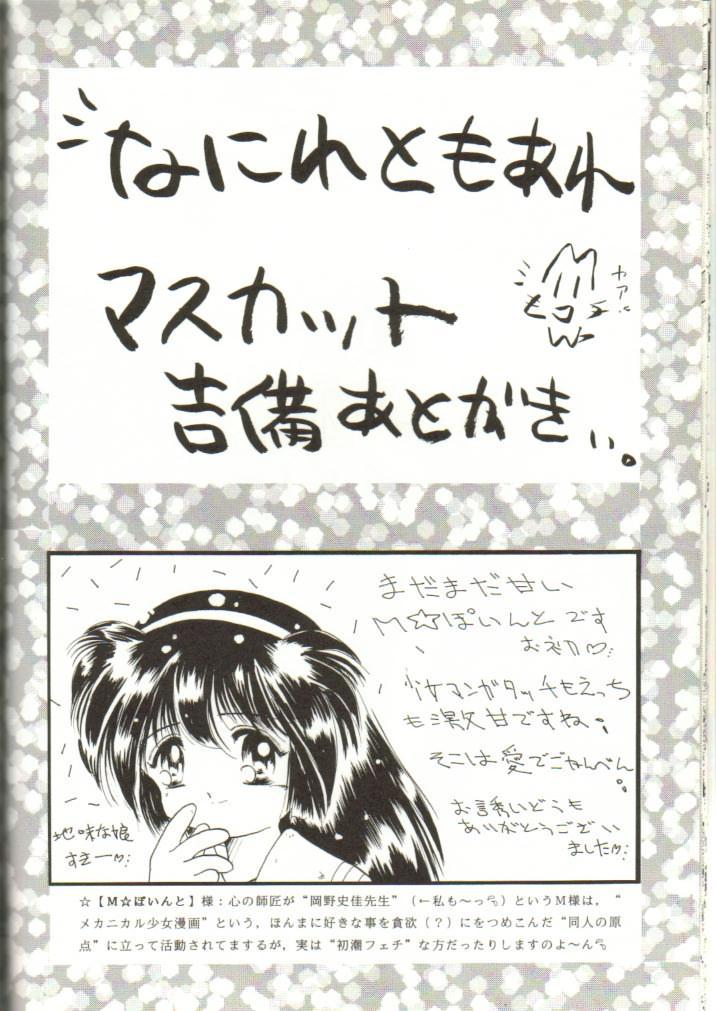 なにれともあれ
マスカット
ヤアい
吉備あとがきぃ。
まだまだ甘い
M☆ぽいんとです
お初♡
少女マンガタッチもえっち
も激甘ですね。
そこは愛でごかんべん。
お誘いどうも
ありがとうござい
ました♡
地味な娘
すきー♡
☆【M☆ぽいんと】様：心の師匠が“岡野史佳先生”（←私も〜っ）というM様は，“
メカニカル少女漫画”という，ほんまに好きな事を貪欲（？）にをつめこんだ“同人の原
点”に立って活動されてまするが，実は“初潮フェチ”な方だったりしますのよ〜ん